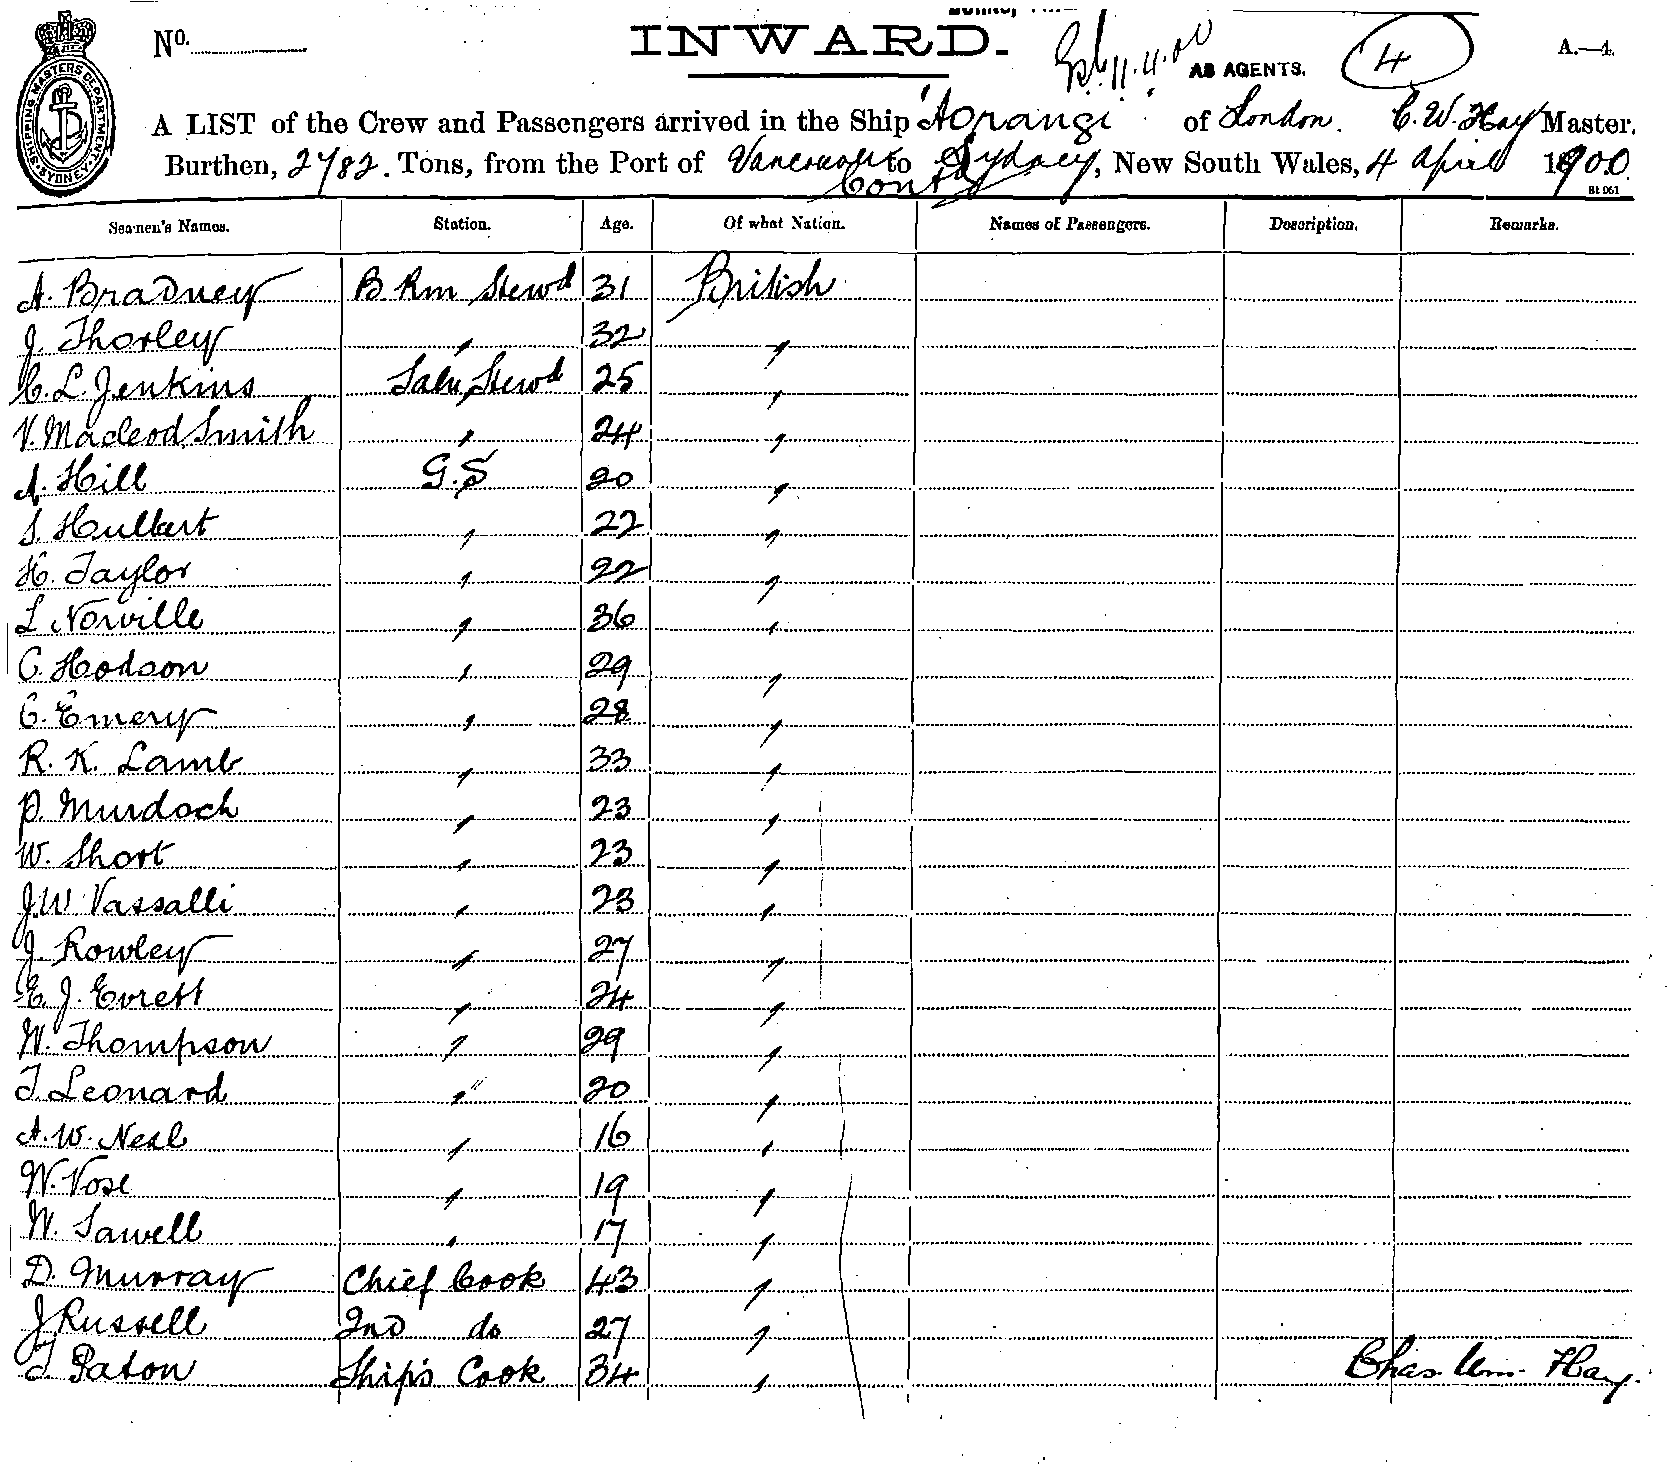 No.
INWARD.
11.4.00
AS AGENTS.
4
A.—4.
SHIPPING MASTERS DEPARTMENT SYDNEY
A LIST of the Crew and Passengers arrived in the Ship "Aorangi" of London. C. W. Hay Master,
Burthen, 2782. Tons, from the Port of Vancouver to Sydney, New South Wales, 4 April 1900.
Contd
Seamen's Names. Station. Age. Of what Nation. Names of Passengers. Description. Remarks.
A. Bradney B. Rm Stewd 31 British
J. Thorley " 32 "
C. L. Jenkins Saln Stewd 25 "
V. Macleod Smith " 24 "
A. Hill G.S 20 "
S. Hulbert " 22 "
H. Taylor " 22 "
L Norville " 36 "
C. Hodson " 29 "
C. Emery " 28 "
R. K. Lamb " 33 "
P. Murdoch " 23 "
W. Short " 23 "
J.W Vassalli " 23 "
J. Rowley " 27 "
E. J. Evrett " 24 "
W. Thompson " 29 "
T. Leonard " 20 "
A. W. Neal " 16 "
W. Vose " 19 "
W. Sawell " 17 "
D. Murray Chief Cook 43 "
J Russell 2nd do 27 "
T. Paton Ship's Cook 34 "
Chas. Wm. Hay.